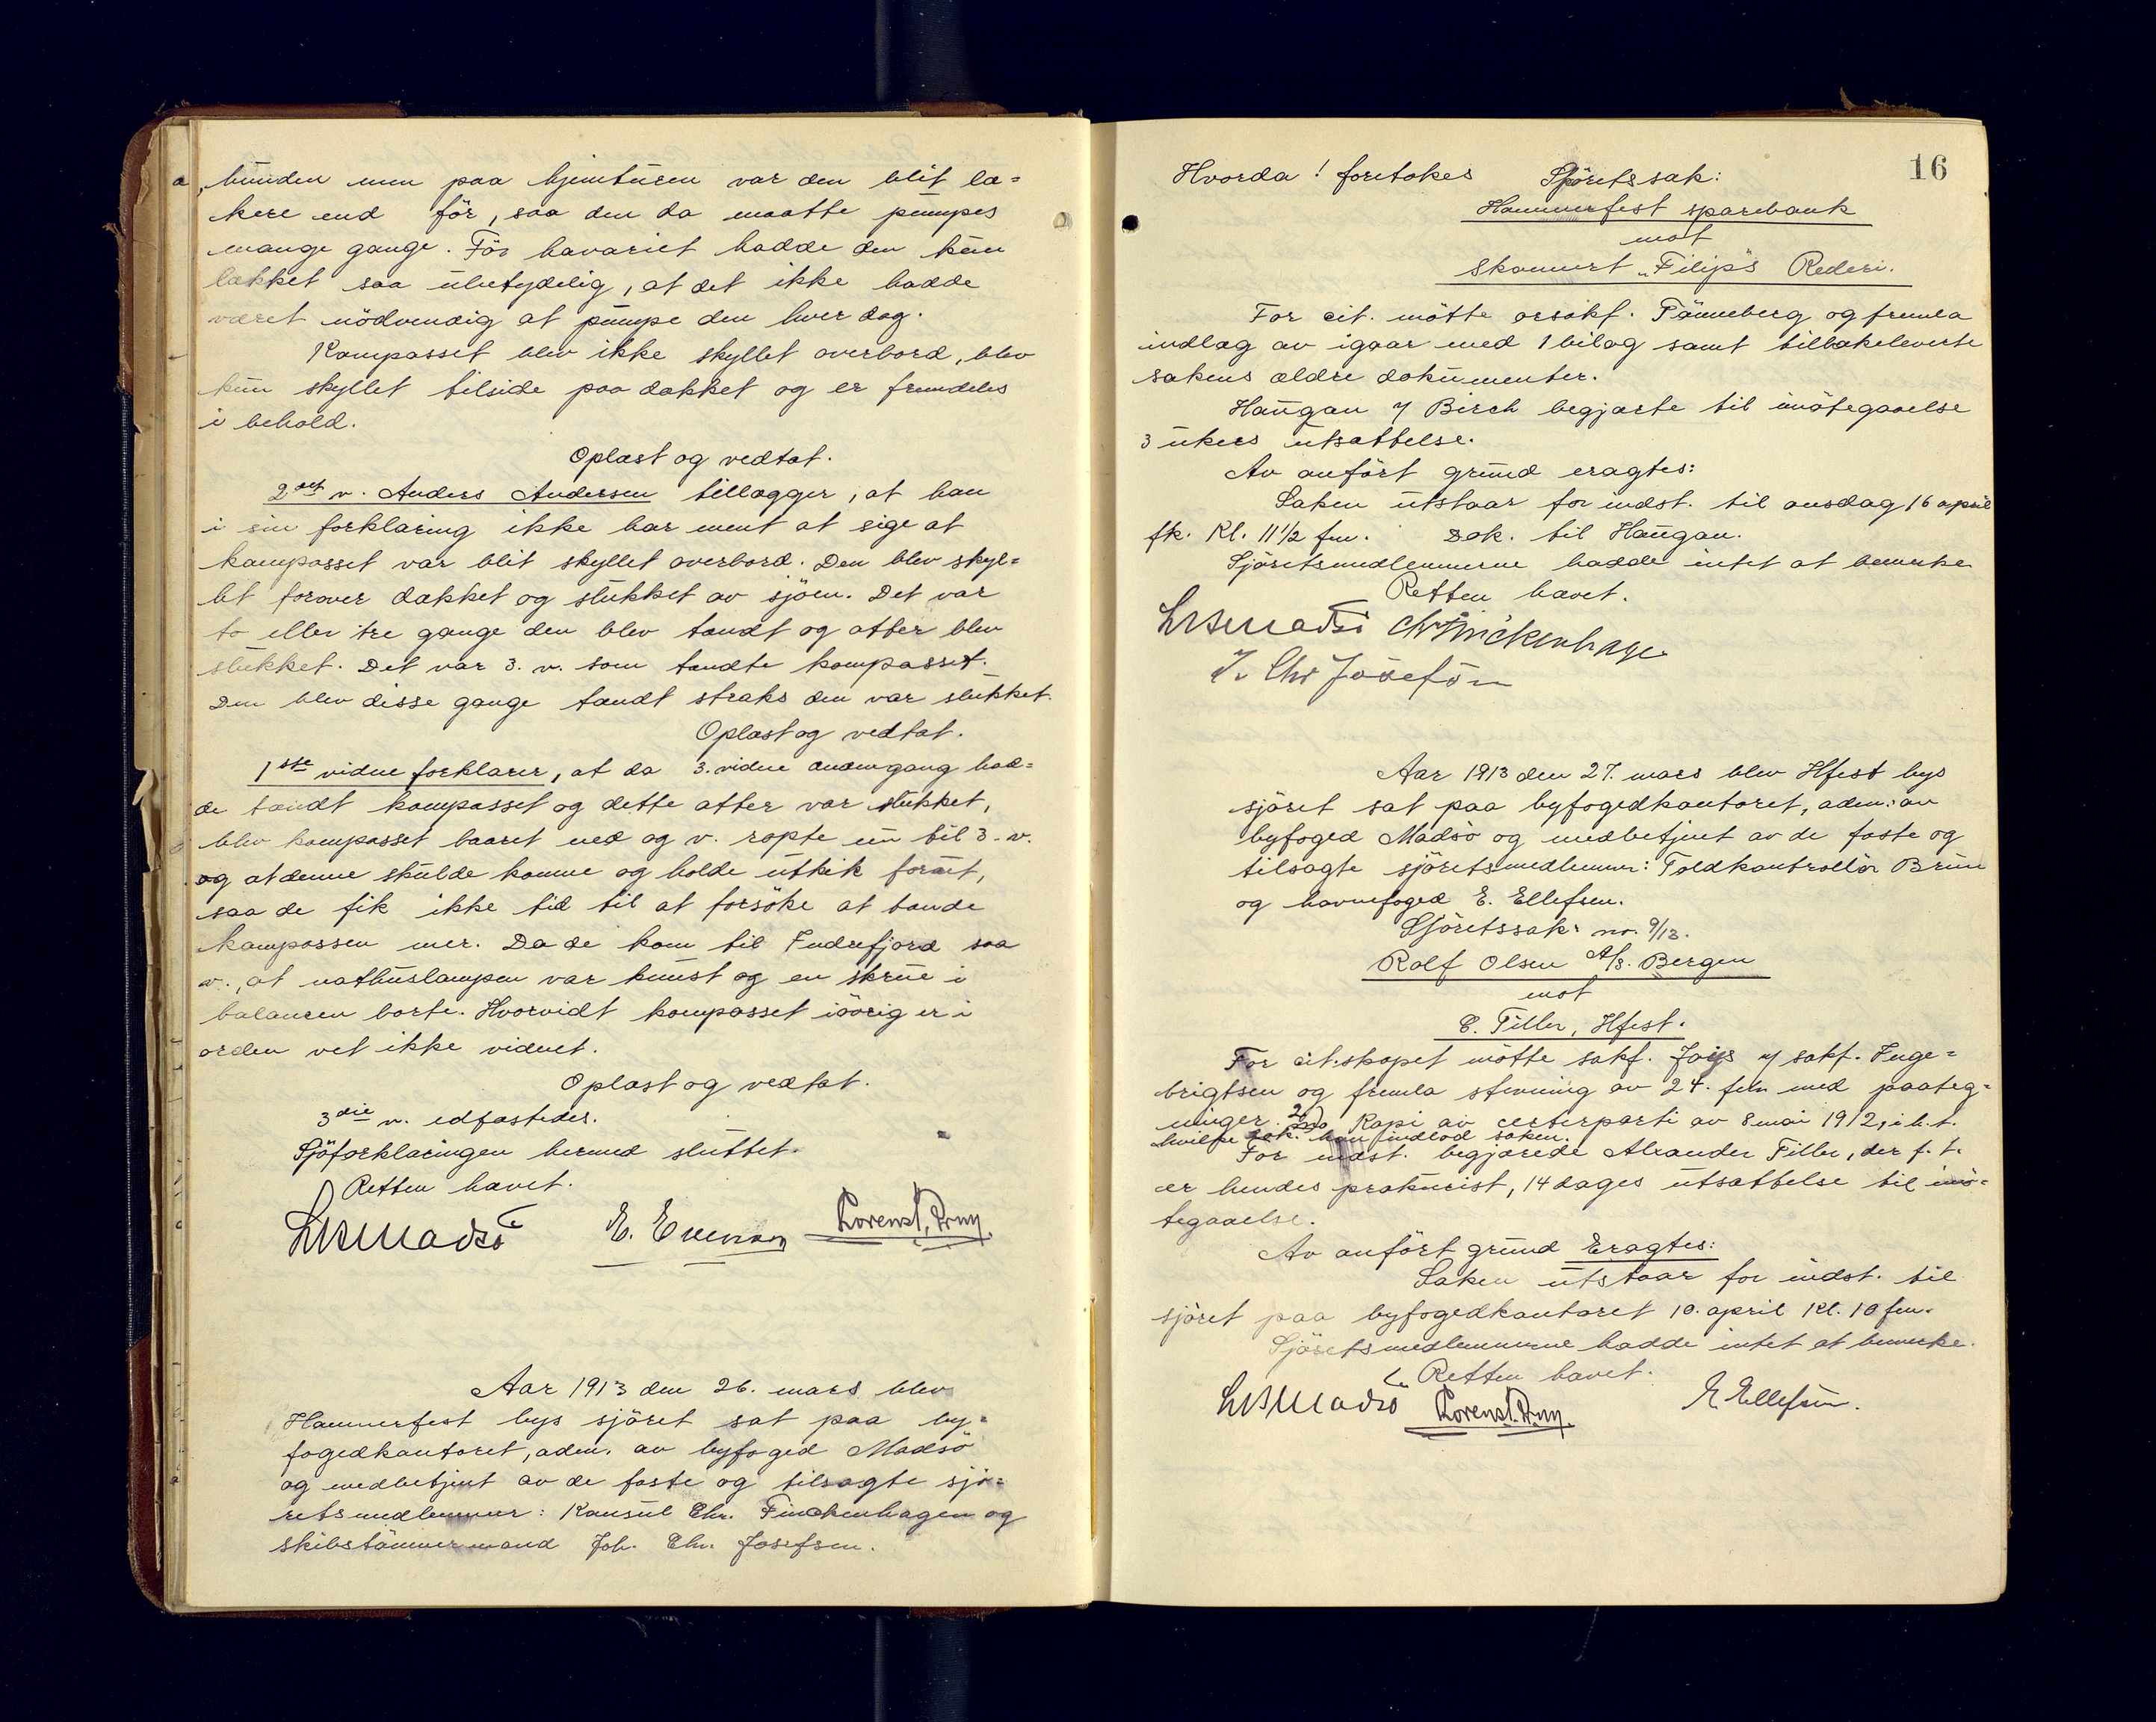 bunden men paa hjemturen var den blit læ=
kere end för, saa den da maatte pumpes
mange gange. För havariet hadde den kun
lækket saa ubetydelig, at det ikke hadde
været nödvendig at pumpe den hver dag.
Kompasset blev ikke skyllet overbord, blev
kun skyllet tilside paa dækket og er fremdeles
i behold.
Oplæst og vedtat.
2det v. Anders Andersen tillægger, at han
i sin forklaring ikke har ment at sige at
kompasset var blit skyllet overbord. Den blev skyl=
let forover dækket og slukket av sjöen. Det var
to eller tre gange den blev tændt og atter blev
slukket. Det var 3. v. som tændte kompasset.
Den blev disse gange tændt straks den var slukket.
Oplæst og vedtat.
1ste vidne forklarer, at da 3. vidne anden gang had=
de tændt kompasset og dette atter var slukket,
blev kompasset baaret ned og v. ropte nu til 3. v.
og at denne skulde komme og holde utkik forut,
saa de fik ikke tid til at forsöke at tænde
kompassen mer. Da de kom til Indrefjord saa
v., at nathuslampen var knust og en skrue i
balansen borte. Hvorvidt kompasset iövrig er i
orden vet ikke vidnet.
Oplæst og vedtat.
3die v. edfæstedes.
Sjöforklaringen hermed sluttet.
Retten hævet.
LMMadsö E. Evensen Lorens Brun
Aar 1913 den 26. mars blev
Hammerfest bys sjöret sat paa by=
fogedkontoret, adm. av byfoged Madsö
og medbetjent av de faste og tilsagte sjö=
retsmedlemmer: Konsul Chr. Finckenhagen og
skibstömmermand Joh. Chr. Josefsen.
16
Hvorda! foretokes Sjöretssak:
Hammerfest sparebank
mot
skonnert "Filip"s Rederi.
For cit. mötte orsakf. Tönneberg og fremla
indlæg av igaar med 1 bilag samt tilbakeleverte
sakens ældre dokumenter.
Haugan / Birch begjærte til imötegaaelse
3 ukers utsættelse.
Av anfört grund eragtes:
Saken utstaar for indst. til onsdag 16 april
fk. Kl. 11 1/2 fm. Dok. til Haugan.
Sjöretsmedlemmerne hadde intet at bemerke
Retten hævet.
LMMadsö Chr Finckenhagen
J. Chr Josefsen
Aar 1913 den 27. mars blev Hfest bys
sjöret sat paa byfogedkontoret, adm. av
byfoged Madsö og medbetjent av de faste og
tilsagte sjöretsmedlemmer: Toldkontrollör Brun
og havnefoged E. Ellefsen.
Sjöretssak no. 9/13.
Rolf Olsen A/S. Bergen
mot
E. Tiller, Hfest.
For cit.skapet mötte sakf. Joys / sakf. Inge=
brigtsen og fremla stevning av 24. feb. med paateg=
ninger 2) Kopi av certerparti av 8 mai 1912, i h.t.
hvilke dok. han indlod saken.
For indst. begjærede Alexander Tiller, der f. t.
er hendes prokurist, 14 dages utsættelse til imö=
tegaaelse.
Av anfört grund Eragtes:
Saken utstaar for indst. til
sjöret paa byfogedkontoret 10. april Kl. 10 fm.
Sjöretsmedlemmerne hadde intet at bemerke.
Retten hævet.
LMMadsö Lorens Brun E Ellefsen.